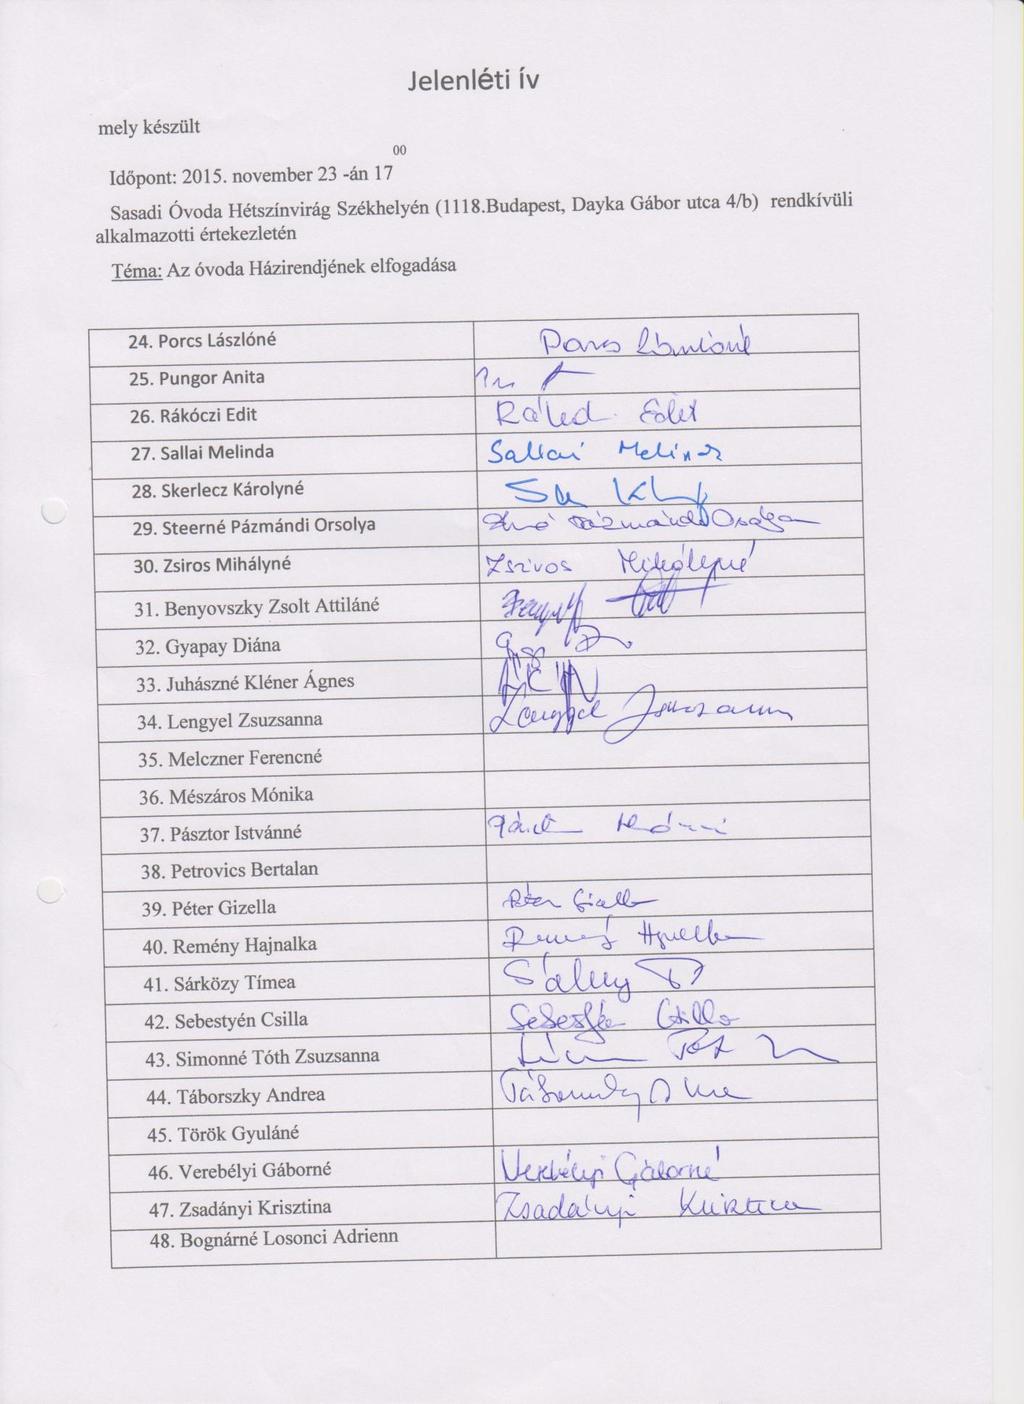 Jelenléti ív
mely készült
Időpont: 2015. november 23 -án 17 00
Sasadi Óvoda Hétszínvirág Székhelyén (1118.Budapest, Dayka Gábor utca 4/b) rendkívüli
alkalmazotti értekezletén
Téma: Az óvoda Házirendjének elfogadása
24. Porcs Lászlóné
25. Pungor Anita
26. Rákóczi Edit Edit
27. Sallai Melinda Sallai Melinda
28. Skerlecz Károlyné
29. Steerné Pázmándi Orsolya Pázmándi Orsolya
30. Zsiros Mihályné Zsiros Mihályné
31. Benyovszky Zsolt Attiláné
32. Gyapay Diána
33. Juhászné Kléner Ágnes
34. Lengyel Zsuzsanna Lengyel Zsuzsanna
35. Melczner Ferencné
36. Mészáros Mónika
37. Pásztor Istvánné
38. Petrovics Bertalan
39. Péter Gizella Péter Gizella
40. Remény Hajnalka Remény Hajnalka
41. Sárközy Tímea
42. Sebestyén Csilla Sebestyén Csilla
43. Simonné Tóth Zsuzsanna
44. Táborszky Andrea Táborszky
45. Török Gyuláné
46. Verebélyi Gáborné Verebélyi Gáborné
47. Zsadányi Krisztina Zsadányi Krisztina
48. Bognárné Losonci Adrienn